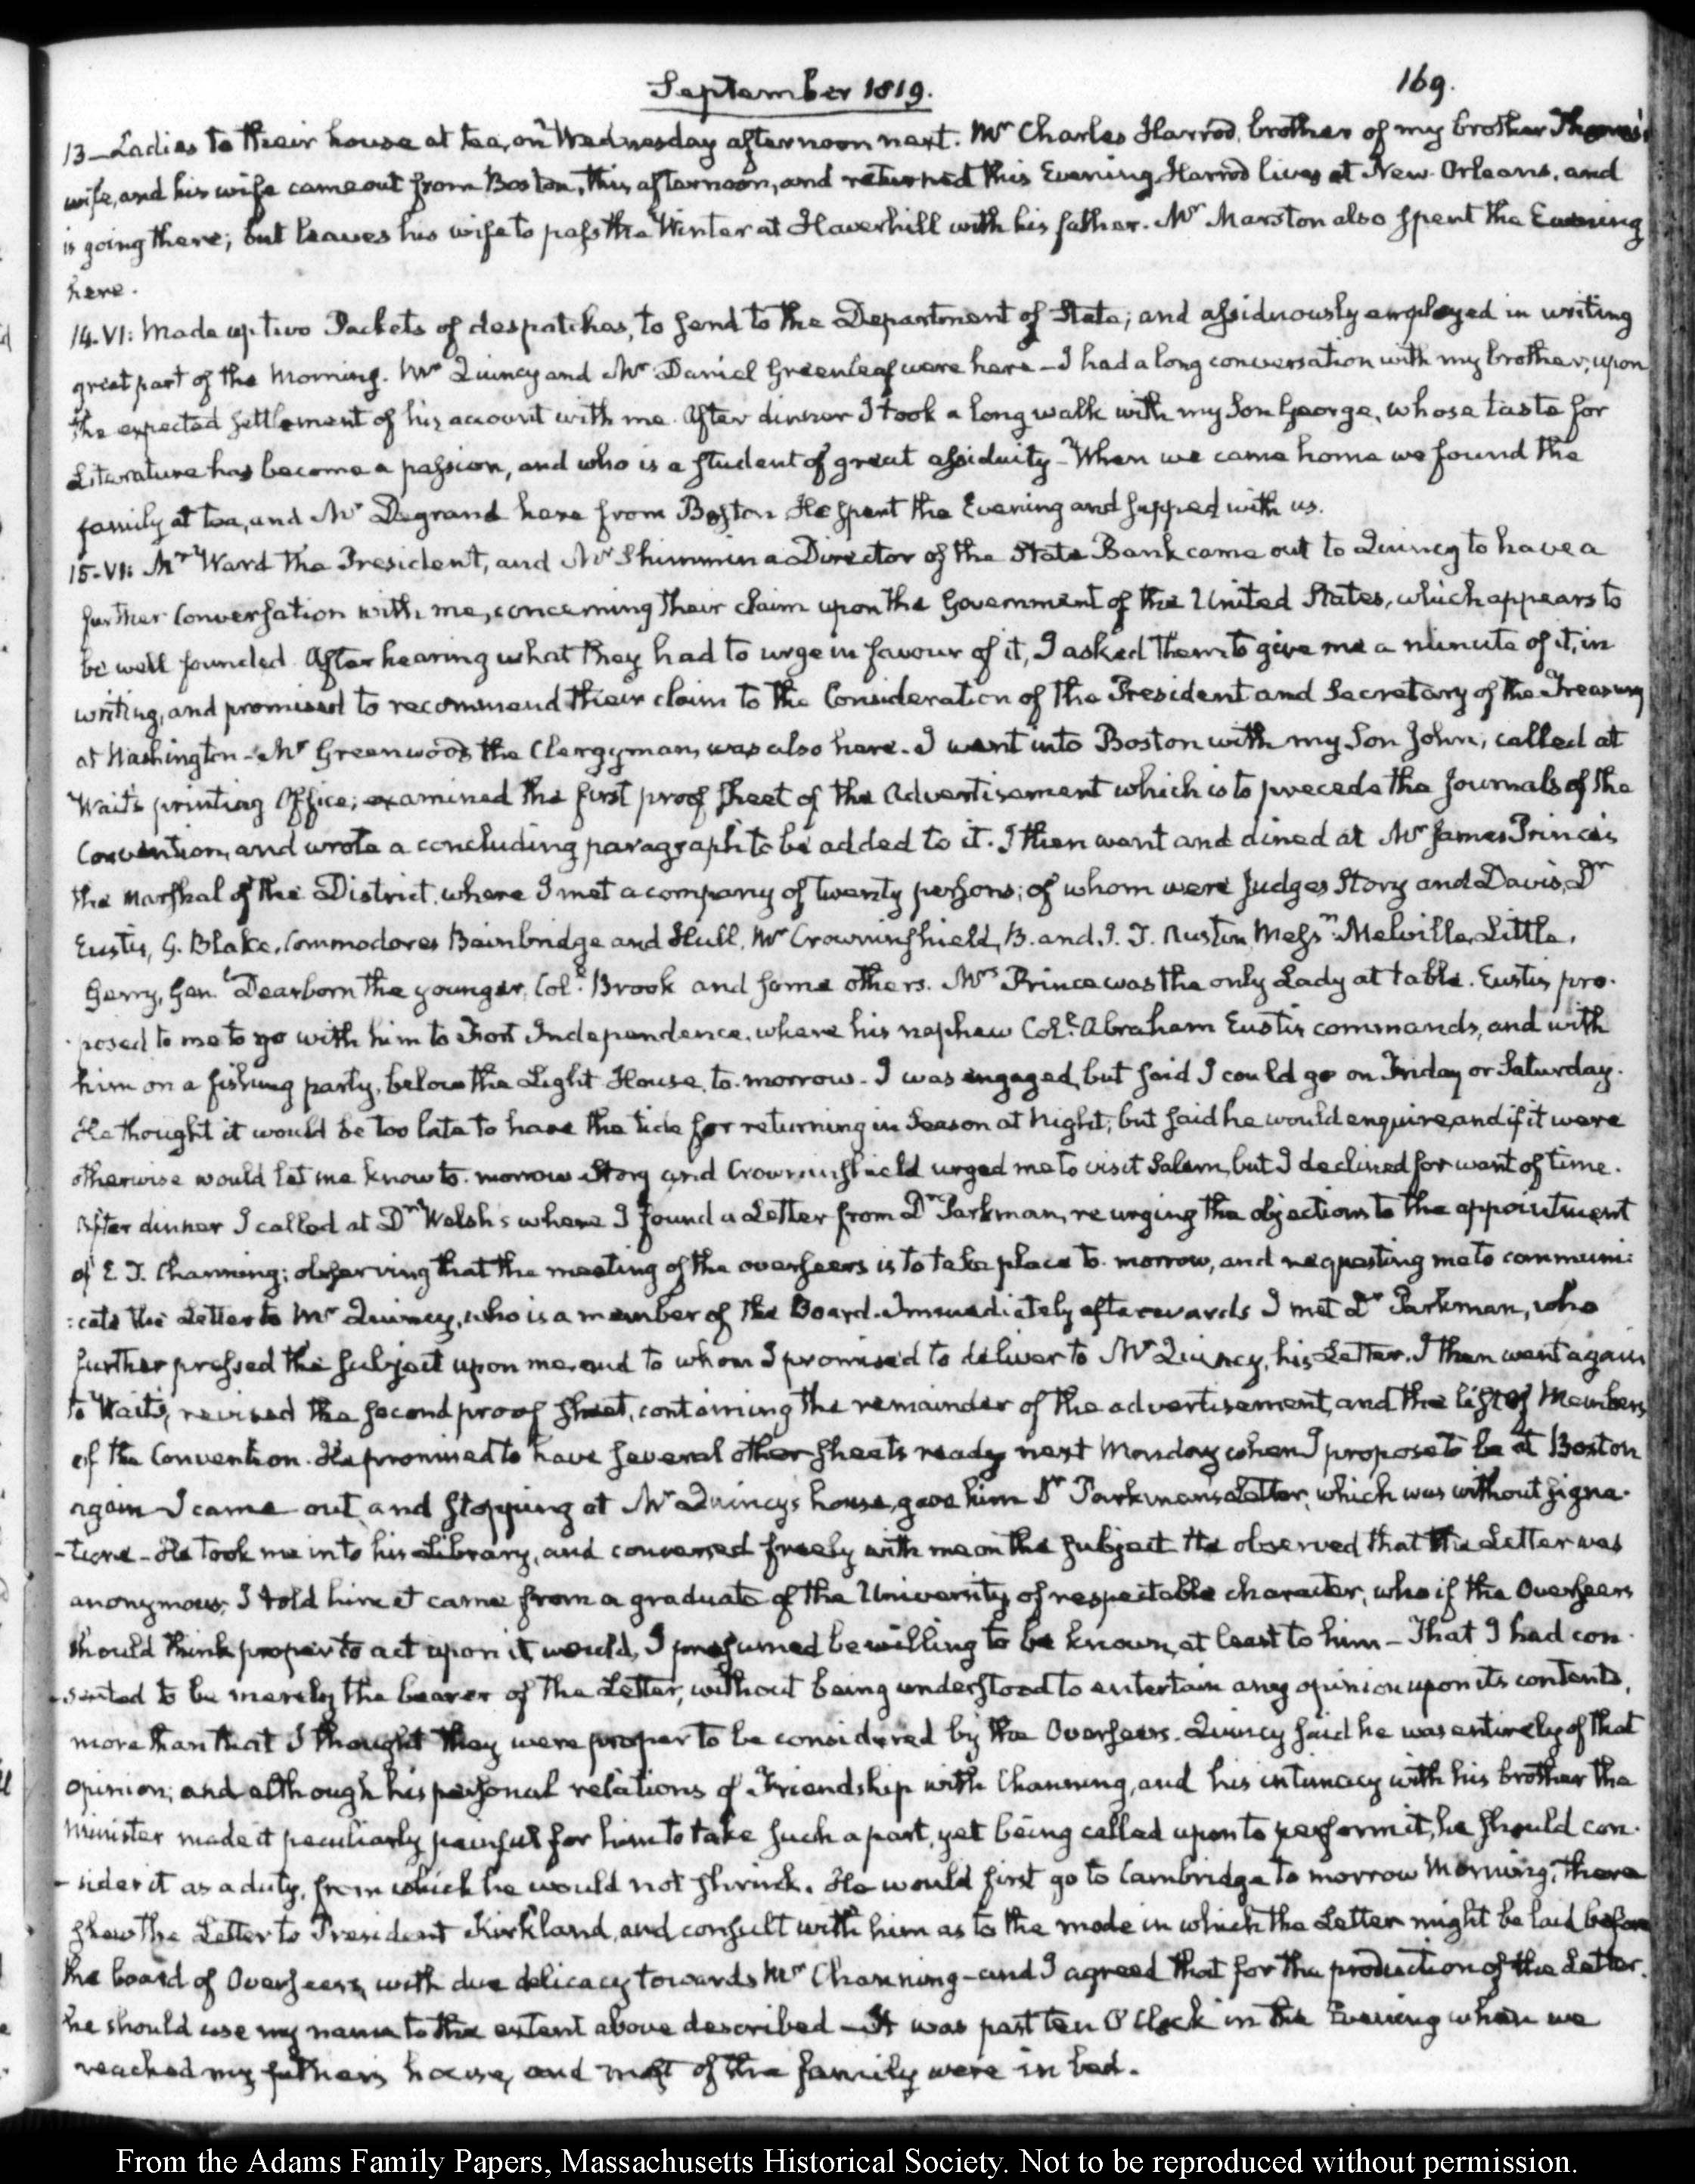 September 1819.
169.
13—Ladies to their house at tea, on Wednesday afternoon next. Mr Charles Harrod, brother of my brother Thomas's
wife, and his wife came out from Boston, this afternoon, and returned this Evening. Harrod lives at New-Orleans, and
is going there; but leaves his wife to pass the Winter at Haverhill with his father. Mr Marston also spent the Evening
here.
14. VI: Made up two Packets of despatches, to send to the Department of State; and assiduously employed in writing
great part of the Morning. Mr Quincy and Mr Daniel Greenleaf were here—I had a long conversation with my brother, upon
the expected settlement of his account with me. After dinner I took a long walk with my Son George, whose taste for
Literature has become a passion, and who is a student of great assiduity—When we came home we found the
family at tea, and Mr Degrand here from Boston. He spent the Evening and supped with us.
15. VI: Mr Ward the President, and Mr Shimmin a Director of the State Bank came out to Quincy to have a
further Conversation with me, concerning their claim upon the Government of the United States, which appears to
be well founded. After hearing what they had to urge in favour of it, I asked them to give me a minute of it, in
writing, and promised to recommend their claim to the Consideration of the President and Secretary of the Treasury
at Washington—Mr Greenwood, the Clergyman, was also here. I went into Boston with my Son John; called at
Wait's printing Office; examined the first proof sheet of the Advertisement which is to precede the Journals of the
Convention, and wrote a concluding paragraph to be added to it. I then went and dined at Mr James Prince's
the Marshal of the District, where I met a company of twenty persons; of whom were Judges Story and Davis, Dr
Eustis, G. Blake, Commodores Bainbridge and Hull, Mr Crowninshield, B. and J. T. Austin, Messrs Melville, Little,
Gerry, Genl Dearborn the younger, Col: Brook and some others. Mrs Prince was the only Lady at table. Eustis pro-
-posed to me to go with him to Fort Independence, where his nephew Col: Abraham Eustis commands, and with
him on a fishing party, below the Light House, to-morrow. I was engaged, but said I could go on Friday or Saturday.
He thought it would be too late to have the tide for returning in Season at Night; but said he would enquire, and if it were
otherwise would let me know to-morrow. Story and Crowninshield urged me to visit Salem, but I declined for want of time.
After dinner I called at Dr Welsh's where I found a Letter from Dr Parkman, re urging the objections to the appointment
of E. T. Channing; observing that the meeting of the overseers is to take place to-morrow, and requesting me to communi:
:cate the Letter to Mr Quincy, who is a member of the Board. Immediately afterwards I met Dr Parkman, who
further pressed the subject upon me, and to whom I promised to deliver to Mr Quincy, his Letter. I then went again
to Wait's, revised the second proof sheet, containing the remainder of the advertisement, and the list of Members
of the Convention. He promised to have several other sheets ready next Monday when I propose to be at Boston
again. I came out, and stopping at Mr Quincy's house, gave him Dr Parkman's Letter, which was without signa-
-ture—He took me into his Library, and conversed freely with me on the subject. He observed that the Letter was
anonymous; I told him it came from a graduate of the University of respectable character, who if the Overseers
should think proper to act upon it, would, I presumed be willing to be known, at least to him—That I had con-
-sented to be merely the bearer of the Letter, without being understood to entertain any opinion upon its contents,
more than that I thought they were proper to be considered by the Overseers. Quincy said he was entirely of that
opinion; and although his personal relations of Friendship with Channing, and his intimacy with his brother the
Minister made it peculiarly painful for him to take such a part, yet being called upon to perform it, he should con-
-sider it as a duty, from which he would not shrink. He would first go to Cambridge to morrow Morning, there
shew the Letter to President Kirkland, and consult with him as to the mode in which the Letter might be laid before
the board of Overseers, with due delicacy towards Mr Channing—and I agreed that for the production of the Letter,
he should use my name to the extent above described—It was past ten O'Clock in the Evening when we
reached my father's house, and most of the family were in bed.
From the Adams Family Papers, Massachusetts Historical Society. Not to be reproduced without permission.